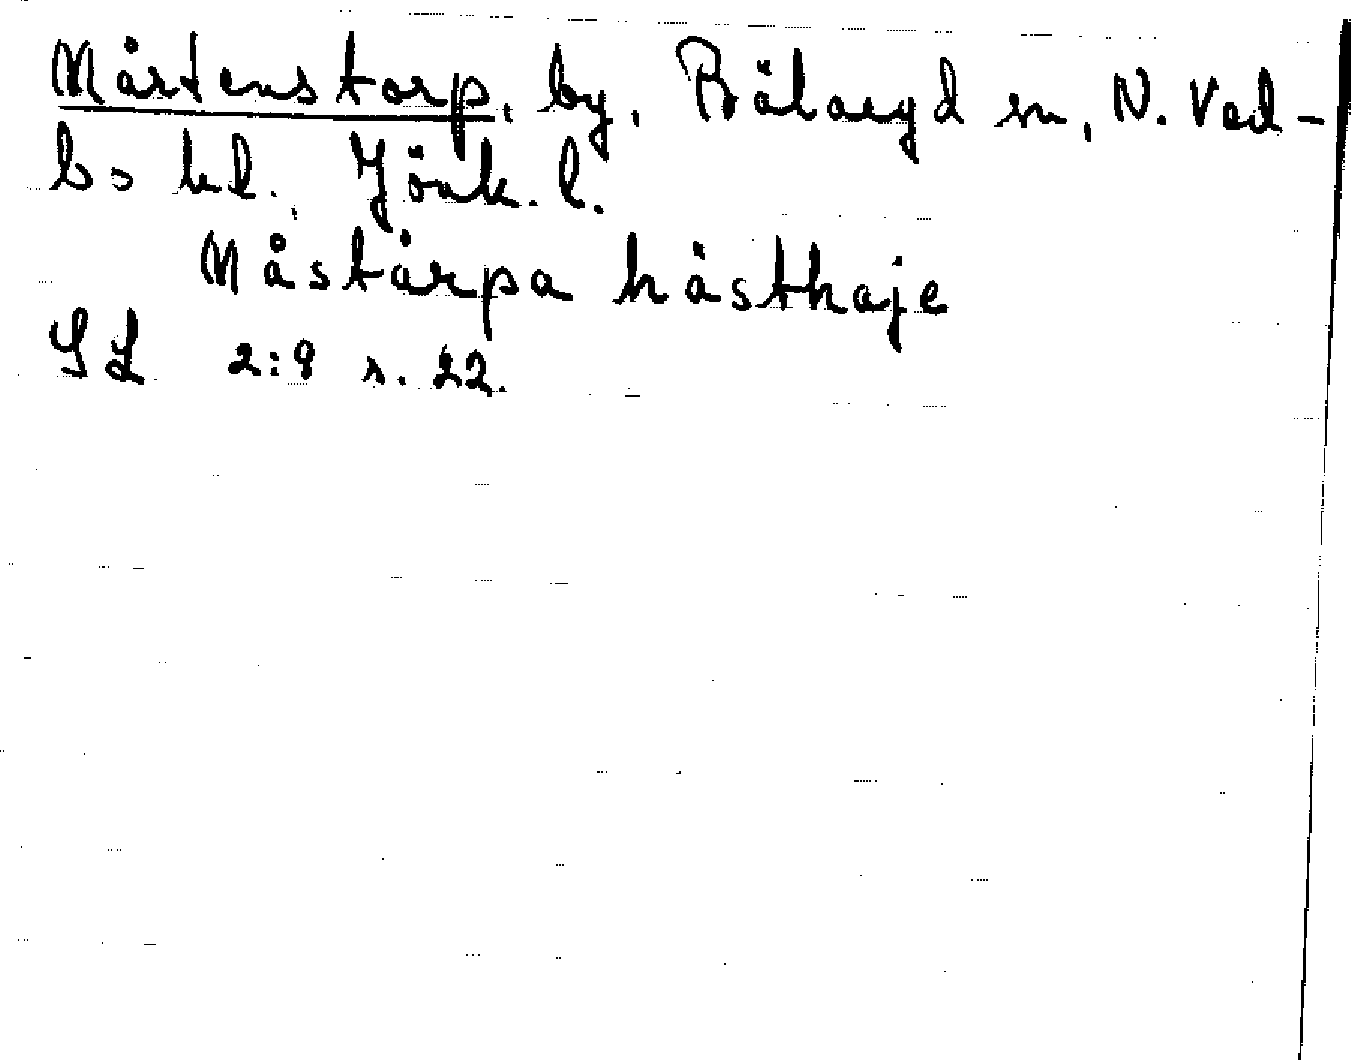 Mårtenstorp, by, Bälaryd sn, N. Ved-
bo hd. Jönk. l.
Måstårpa hästhaje
SL 2:9 s. 22.